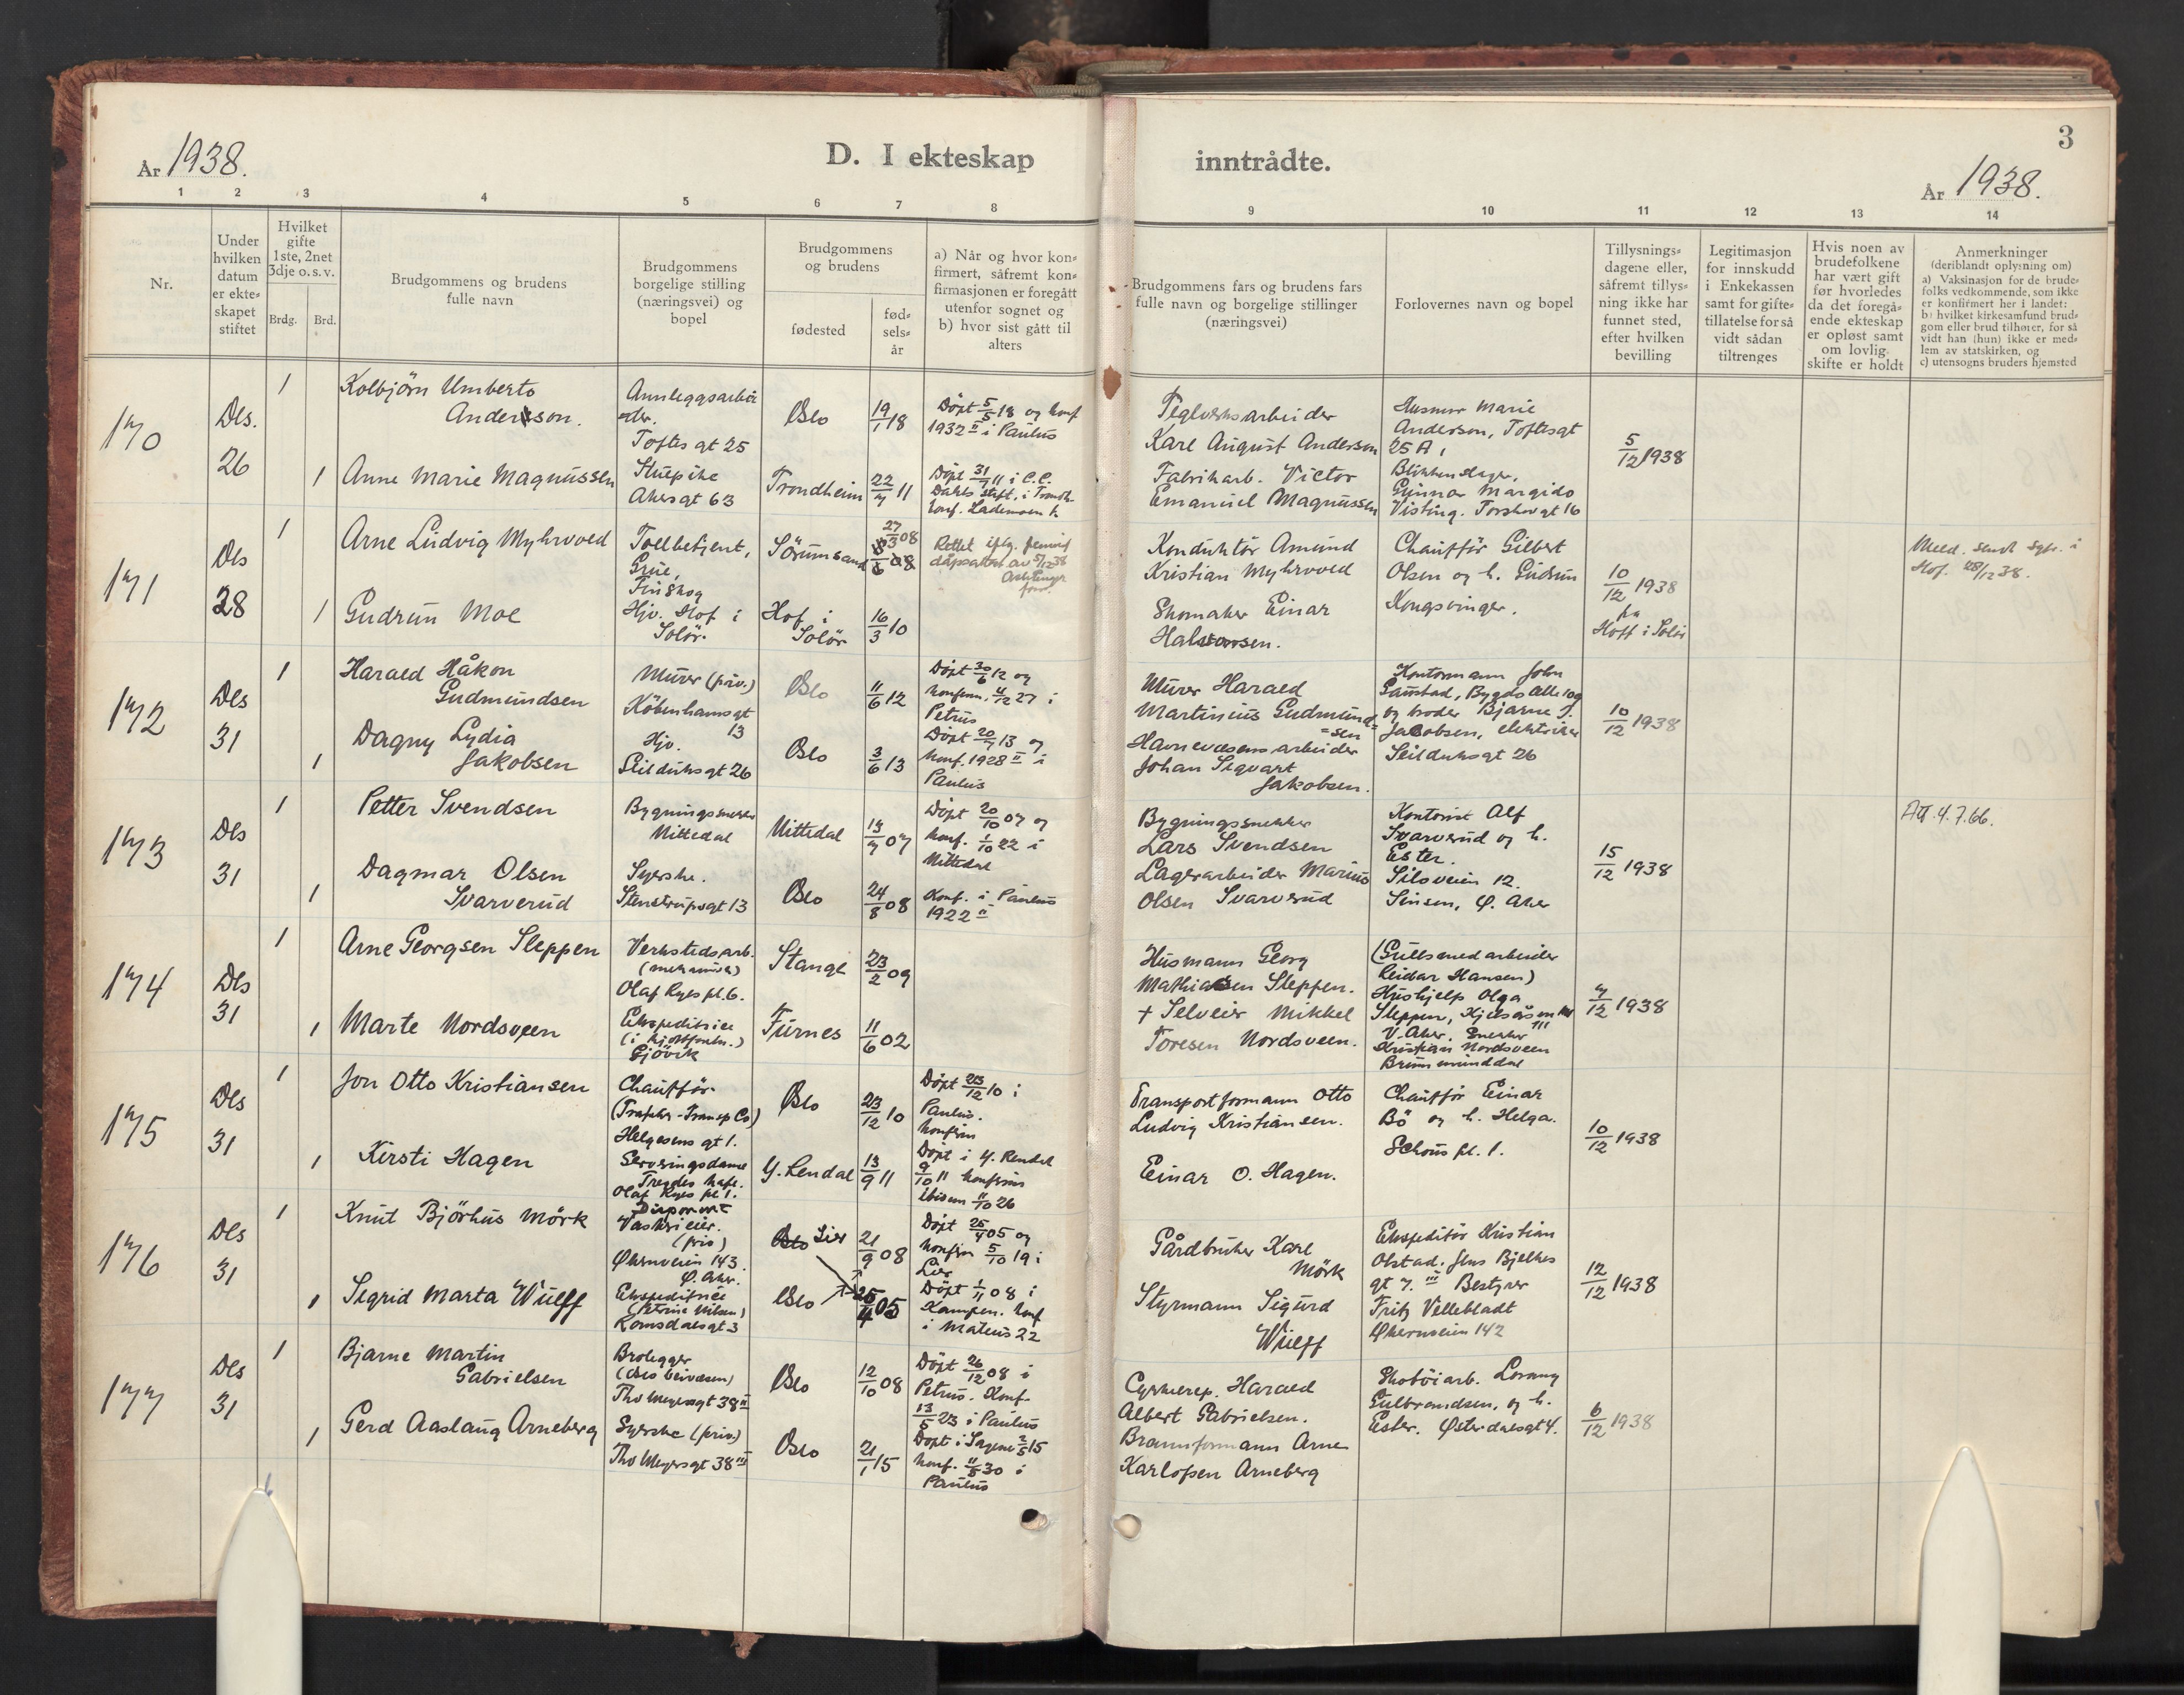 3
År 1938.
D. I ekteskap
inntrådte.
År 1938.
1 2 3 4 5 6 7 8
9 10 11 12 13 14
Nr.
Under
hvilken
datum
er ekte-
skapet
stiftet
Hvilket
gifte
1ste, 2net
3dje o. s. v.
Brdg. Brd.
Brudgommens og brudens
fulle navn
Brudgommens
borgelige stilling
(næringsvei) og
bopel
Brudgommens
og brudens
fødested
fød-
sels-
år
a) Når og hvor kon-
firmert, såfremt kon-
firmasjonen er foregått
utenfor sognet og
b) hvor sist gått til
alters
Brudgommens fars og brudens fars
fulle navn og borgelige stillinger
(næringsvei)
Forlovernes navn og bopel
Tillysnings-
dagene eller,
såfremt tillys-
ning ikke har
funnet sted,
efter hvilken
bevilling
Legitimasjon
for innskudd
i Enkekassen
samt for gifte-
tillatelse for så
vidt sådan
tiltrenges
Hvis noen av
brudefolkene
har vært gift
før hvorledes
da det foregå-
ende ekteskap
er opløst samt
om lovlig
skifte er holdt
Anmerkninger
(deriblandt oplysning om)
a) Vaksinasjon for de brude-
folks vedkommende, som ikke
er konfirmert her i landet:
b) hvilket kirkesamfund brud-
gom eller brud tilhører, for så
vidt han (hun) ikke er med-
lem av statskirken, og
c) utensogns bruders hjemsted
170
Des.
26
1
Kolbjörn Umberto
Anderson.
Annleggsarbei
der.
Toftes gt 25
Oslo
19/1 18
Döpt 5/5 18 og konf
1932 II i Paulus
Teglverksarbeider
Karl August Anderson
Husmor Marie
Anderson, Toftesgt
25 A,
5/12 1938
1
Anne Marie Magnussen
Stuepike
Akersgt 63
Trondheim
22/7 11
Döpt 31/7 11 i C.C.
Dahls stift. i Trondh.
konf. Lademoen k
Fabrikarb. Victor
Emanuel Magnussen
Blikkenslager,
Gunnar Margido
Visting. Torshovgt 16
171
Des
28
1
Arne Ludvig Myhrvold
Tollbetjent,
Grue,
Finskog
Sörumsand
27/3 08
Rettet iflg. fremvist
dåpsattest av 5/12 38
Konduktör Amund
Kristian Myhrvold
Chaufför Gilbert
Olsen og h. Gudrun
Kongsvinger.
10/12 1938
fra
Hoff i Solör
Meld. sendt sgpr. i
Hof. 28/12 38.
1
Gudrun Moe
Hjv. Hof i
Solör.
Hof i
Solör
16/3 10
Skomaker Einar
Halvorsen.
172
Des
31
1
Harald Håkon
Gudmundsen
Murer (priv.)
Köbenhavnsgt
13
Oslo
11/6 12
Döpt 30/6 12 og
konfirm. 4/12 27 i
Petrus
Murer Harald
Martinius Gudmund
=sen
Kontormann John
Gamstad, Bygdö Alle 109
og broder Bjarne J.
Jacobsen, elektriker
Seilduksgt 26
10/12 1938
1
Dagny Lydia
Jakobsen
Hjv.
Seilduksgt 26
Oslo
3/6 13
Döpt 20/7 13 og
konf. 1928 II i
Paulus
Havnevæsensarbeider
Johan Sigvart
Jakobsen.
173
Des
31
1
Petter Svendsen
Bygningssnekker
Nittedal
Nittedal
13/7 07
Döpt 20/10 07 og
konf. 1/10 22 i
Nittedal
Bygningssnekker
Lars Svendsen
Kontorist Alf
Svarverud og h.
Ester.
Siloveien 12.
Sinsen, Ø. Aker
15/12 1938
Att. 4.7.66.
1
Dagmar Olsen
Svarverud
Syerske.
Stenstrupsgt 13
Oslo
24/8 08
Konf. i Paulus
1922 II
Lagerarbeider Marius
Olsen Svarverud
174
Des
31
1
Arne Georgsen Sleppen
Verkstedsarb.
(mekanisk)
Olaf Ryes pl. 6.
Stange
23/2 09
Husmann Georg
Mathiassen Sleppen.
(Gullsmedarbeider
Reidar Hansen)
Hushjelp Olga
Sleppen, Kjelsåsveien
111
V. Aker. Snekker
Kristian Nordsveen
Brummunddal
7/12 1938
1
Marte Nordsveen
Ekspeditrice
(i kjöttforretn.)
Gjövik
Furnes
11/6 02
+ Selveier Mikkel
Toresen Nordsveen.
175
Des
31
1
Jon Otto Kristiansen
Chaufför
(Trafikk-Transp Co)
Helgesens gt 1.
Oslo
23/12 10
Döpt 23/12 10 i
Paulus.
konfirm
Transportformann Otto
Ludvig Kristiansen.
Chaufför Einar
Bö og h. Helga.
Schous pl. 1.
10/12 1938
1
Kirsti Hagen
Serveringsdame
Trendes kafe.
Olaf Ryes pl 1.
Y. Rendal
13/9 11
Döpt i Y. Rendal
9/10 11 konfirm
ibidem 11/10 26
Einar O. Hagen.
176
Des
31
1
Knut Björhus Mörk
Disponent
Vaskrieier.
(priv)
Økernveien 143.
Ø. Aker.
Oslo Lier
21/9 08
Döpt 25/4 05 og
konfirm 5/10 19 i
Lier
Gårdbruker Karl
Mörk
Ekspeditör Kristian
Olstad. Jens Bjelkes
gt 7. III Bestyrer
Fritz Vellebladt
Økernveien 142
12/12 1938
1
Sigrid Marta Wulff
Ekspeditrice
(Petrine Nilsen)
Romsdalsgt 3
Oslo
25/4 05
Döpt 1/11 08 i
Kampen. konf
i Mateus 22
Styrmann Sigurd
Wulff
177
Des
31
1
Bjarne Martin
Gabrielsen
Brolegger
(Oslo Veivæsen)
Thv Meyersgt 38 II
Oslo
12/10 08
Döpt 26/12 08 i
Petrus. Konf.
13/5 23 i Paulus
Cyskerep. Harald
Albert Gabrielsen.
Skotöiarb. Lorang
Gulbrandsen, og h.
Ester. Østerdalsgt 4.
6/12 1938
1
Gerd Aaslaug Arneberg
Syerske (priv.)
Thv Meyersgt 38 III
Oslo
21/1 15
Döpt i Sagene 2/5 15
konf. 11/5 30 i
Paulus
Brannformann Arne
Karlofsen Arneberg